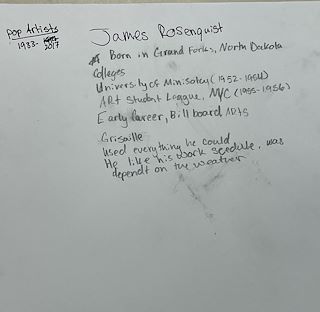 pop Artists
1933-
2017
James Rosenquist
Born in Grand Forks, North Dakota
Colleges
University of Minisotey (1952-1954)
Art Student League, NYC (1955-1956)
Early Career, Bill board ARTS
Grisaille
used everything he could
He like his work scedule, was
dependt on the weather